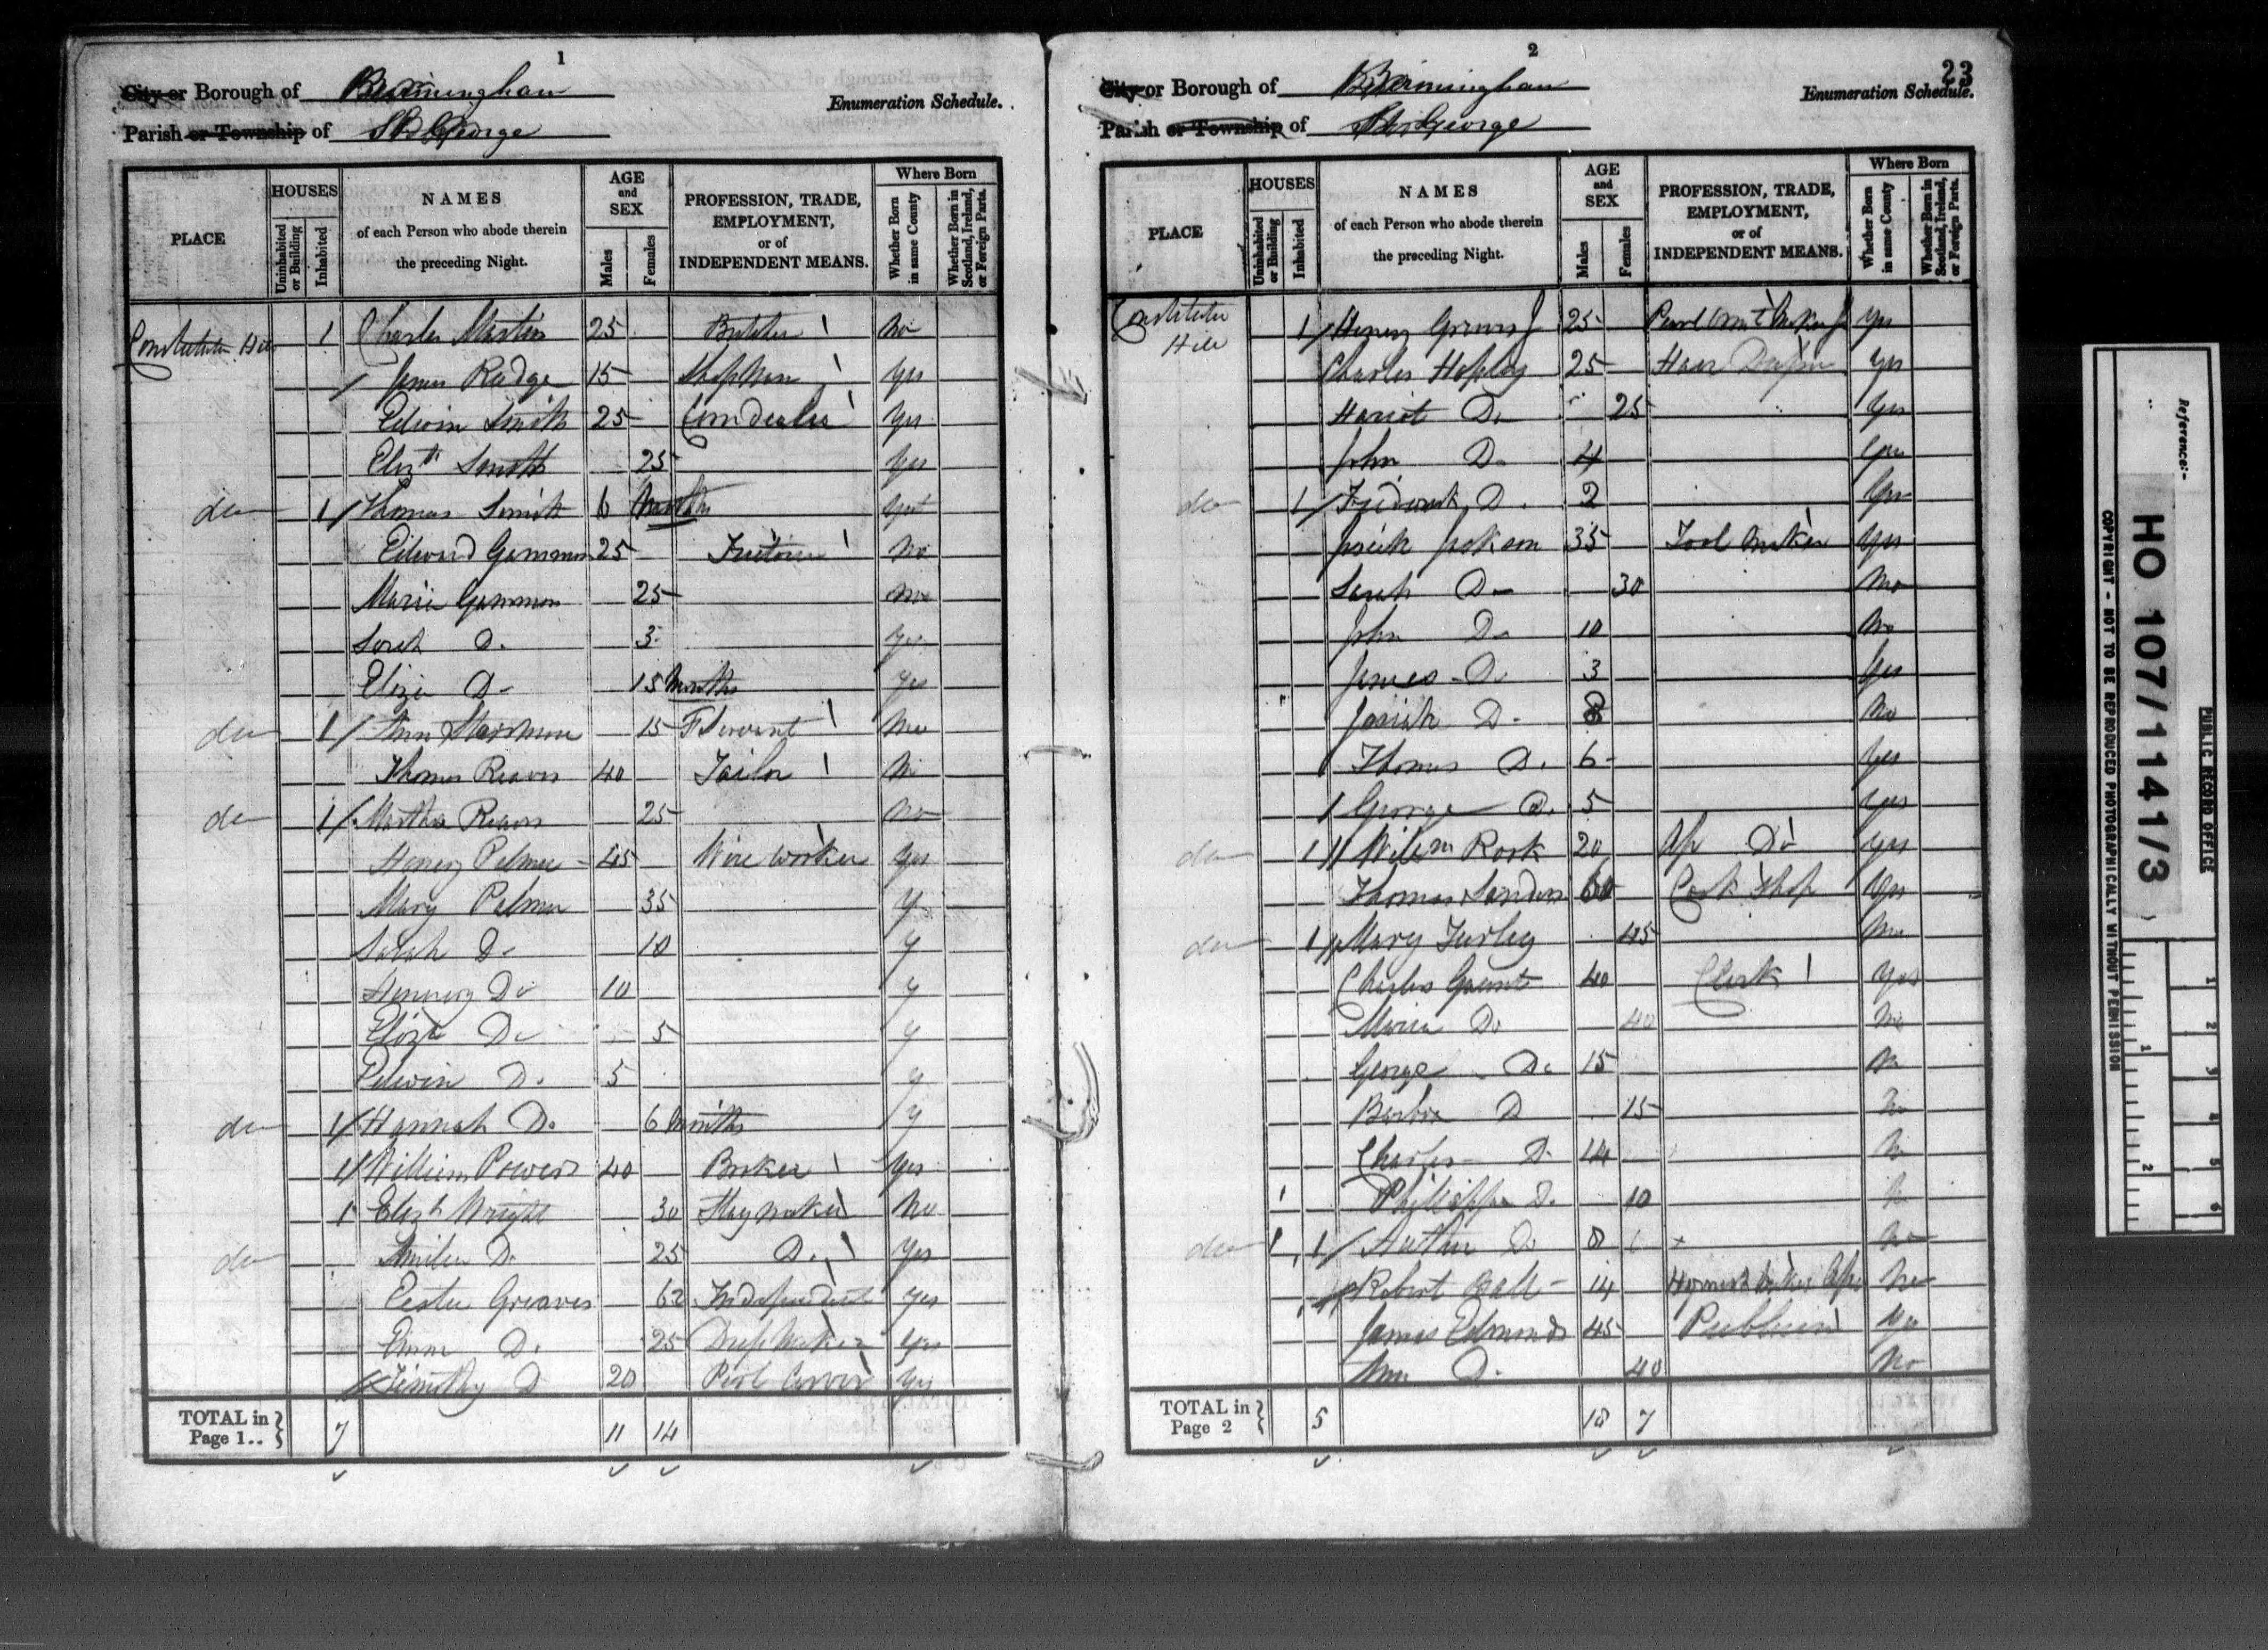 1
City or Borough of Birmingham
Enumeration Schedule.
Parish or Township of St. George
PLACE
HOUSES
Uninhabited or Building
Inhabited
NAMES
of each Person who abode therein
the preceding Night.
AGE
and
SEX
Males
Females
PROFESSION, TRADE,
EMPLOYMENT,
or of
INDEPENDENT MEANS.
Where Born
Whether Born in same County
Whether Born in Scotland, Ireland, or Foreign Parts.
1 Charles Martin 25 Butcher No
James Rudge 15 Shopman Yes
Edwin Smith 25 Corn dealer Yes
Elizth Smith 25 Yes
do 1 Thomas Smith 6 Months
Edward Gammon 25 No
Maria Gammon 25 No
Sarah Do 3 Yes
Eliza Do 15 Months Yes
do 1 Ann 15 F Servant No
Thomas Reaves 40 Tailor No
do 1 Martha Reaves 25 No
Henery Palmer 45 Wire worker Yes
Mary Palmer 35 Y
Sarah Do 10 Y
Hennery Do 10 Y
Elizth Do 5 Y
Edwin Do 5 Y
do 1 Hannah Do 6 Months Y
1 William Powers 40 Yes
1 Elizh Wright 30 Stay maker No
do Do 25 Do Yes
Greaves 62 Independent Yes
Emma Do 25 Yes
Timothy D 20 Yes
TOTAL in Page 1.. 7 11 14
2
23
City or Borough of Birmingham
Enumeration Schedule.
Parish or Township of St George
PLACE
HOUSES
Uninhabited or Building
Inhabited
NAMES
of each Person who abode therein
the preceding Night.
AGE
and
SEX
Males
Females
PROFESSION, TRADE,
EMPLOYMENT,
or of
INDEPENDENT MEANS.
Where Born
Whether Born in same County
Whether Born in Scotland, Ireland, or Foreign Parts.
Hill 1 Henery 25 Yes
Charles 25 Yes
Do 25 Yes
John Do 4 Yes
do 1 Do 2 Yes
Josiah Jackson 35 Tool Maker Yes
Sarah Do 30 No
John Do 10 No
James Do 3 Yes
Josiah D. 8 No
Thomas D. 6 Yes
George D. 5 Yes
do 1 Willm Rock 20 Do Yes
Thomas Sanders 60 Cook Shop Yes
do 1 Mary Turley 45 No
Charles Gaunt 40 Clerk Yes
Maria Do 40 No
George Do 15 No
D 15 No
Charles D. 14 No
D. 10 No
do 1 Do 8 No
Robert Ball 14 No
James Edmunds 45 Publican
Ann D. 40 No
TOTAL in Page 2 5 18 7
PUBLIC RECORD OFFICE
Reference:-
HO 107/1141/3
COPYRIGHT - NOT TO BE REPRODUCED PHOTOGRAPHICALLY WITHOUT PERMISSION
1 2
1 2 3 4 5 6